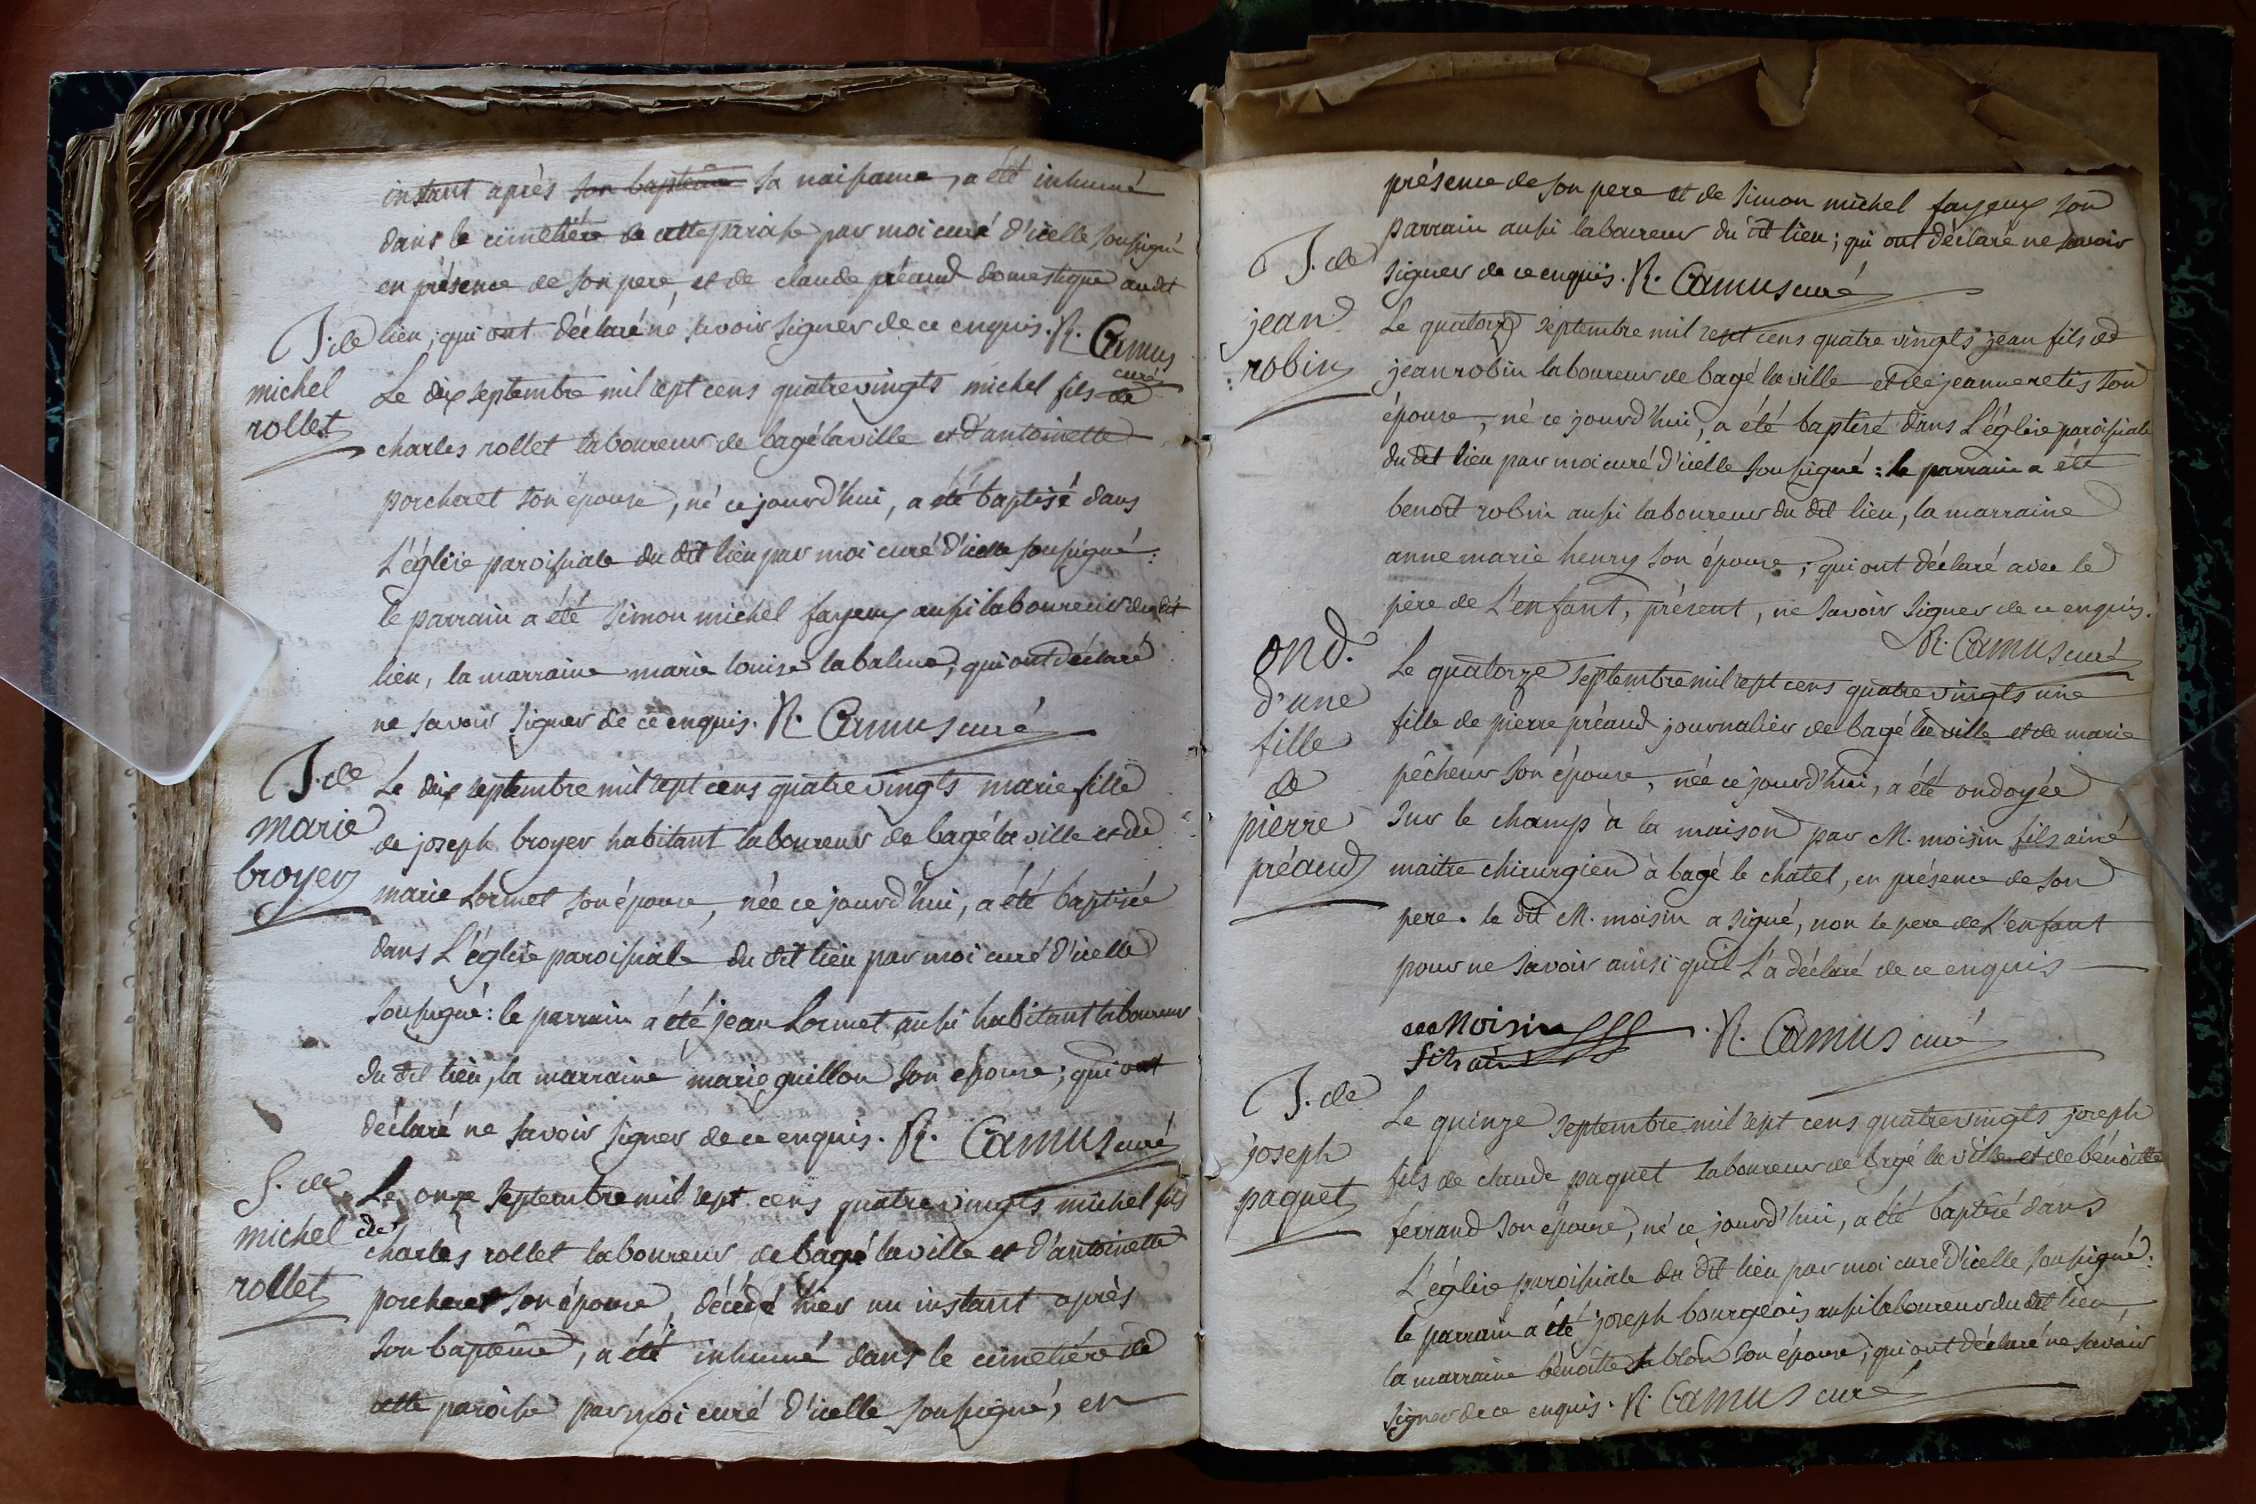 instant après son baptême sa naissance, a été inhumé
dans le cimetière de cette paroisse par moi curé d'icelle soussigné
en présence de son pere, et de claude préaud domestique au dit
lieu, qui ont déclaré ne savoir signer de ce enquis. R. Camus
curé
B. de
michel
rollet
Le dix septembre mil sept cens quatre vingts michel fils de
charles rollet laboureur de bagé la ville et d'antoinette
porcheret son épouse, né ce jourd'hui, a été baptisé dans
L'église paroissiale du dit lieu par moi curé d'icelle soussigné:
le parrain a été simon michel fayeux aussi laboureur du dit
lieu, la marraine marie louise labalme; qui ont déclaré
ne savoir signer de ce enquis. R. Camus curé
B. de
marie
broyer
Le dix septembre mil sept cens quatre vingts marie fille
de joseph broyer habitant laboureur de bagé la ville et de
marie Lormet son épouse, née ce jourd'hui, a été baptisée
dans L'église paroissiale du dit lieu par moi curé d'icelle
soussigné: le parrain a été jean Lormet aussi habitant laboureur
du dit lieu, la marraine marie guillon son épouse; qui ont
déclaré ne savoir signer de ce enquis. R. Camus curé
S. de
michel
rollet
Le onze septembre mil sept cens quatre vingts michel fils
de charles rollet laboureur de bagé la ville et d'antoinette
porcheret son épouse, décédé hier un instant après
son baptême, a été inhumé dans le cimetière de
cette paroisse par moi curé d'icelle soussigné, en
présence de son pere et de simon michel fayeux son
parrain aussi laboureur du dit lieu; qui ont déclaré ne savoir
signer de ce enquis. R. Camus curé
B. de
jean
robin
Le quatorze septembre mil sept cens quatre vingts jean fils de
jean robin laboureur de bagé la ville et de jeanne retis son
épouse, né ce jourd'hui, a été baptisé dans L'église paroissiale
du dit lieu par moi curé d'icelle soussigné: le parrain a été
benoit robin aussi laboureur du dit lieu, la marraine
anne marie henry son épouse; qui ont déclaré avec le
père de L'enfant, présent, ne savoir signer de ce enquis.
R. Camus curé
ond.
d'une
fille
de
pierre
préaud
Le quatorze septembre mil sept cens quatre vingts une
fille de pierre préaud journalier de bagé la ville et de marie
pêcheur son épouse, née ce jourd'hui, a été ondoyée
sur le champ à la maison par M. moisin fils ainé
maitre chirurgien à bagé le chatel, en présence de son
pere. le dit M. moisin a signé, non le pere de L'enfant
pour ne savoir ainsi qu'il L'a déclaré de ce enquis
Moisin
fils ainé
R. Camus curé
B. de
joseph
paquet
Le quinze septembre mil sept cens quatre vingts joseph
fils de claude paquet laboureur de bagé la ville et de bénoitte
ferrand son épouse, né ce jourd'hui, a été baptisé dans
L'église paroissiale du dit lieu par moi curé d'icelle soussigné:
le parrain a été joseph bourgeois aussi laboureur du dit lieu,
la marraine benoitte son épouse; qui ont déclaré ne savoir
signer de ce enquis. R. Camus curé